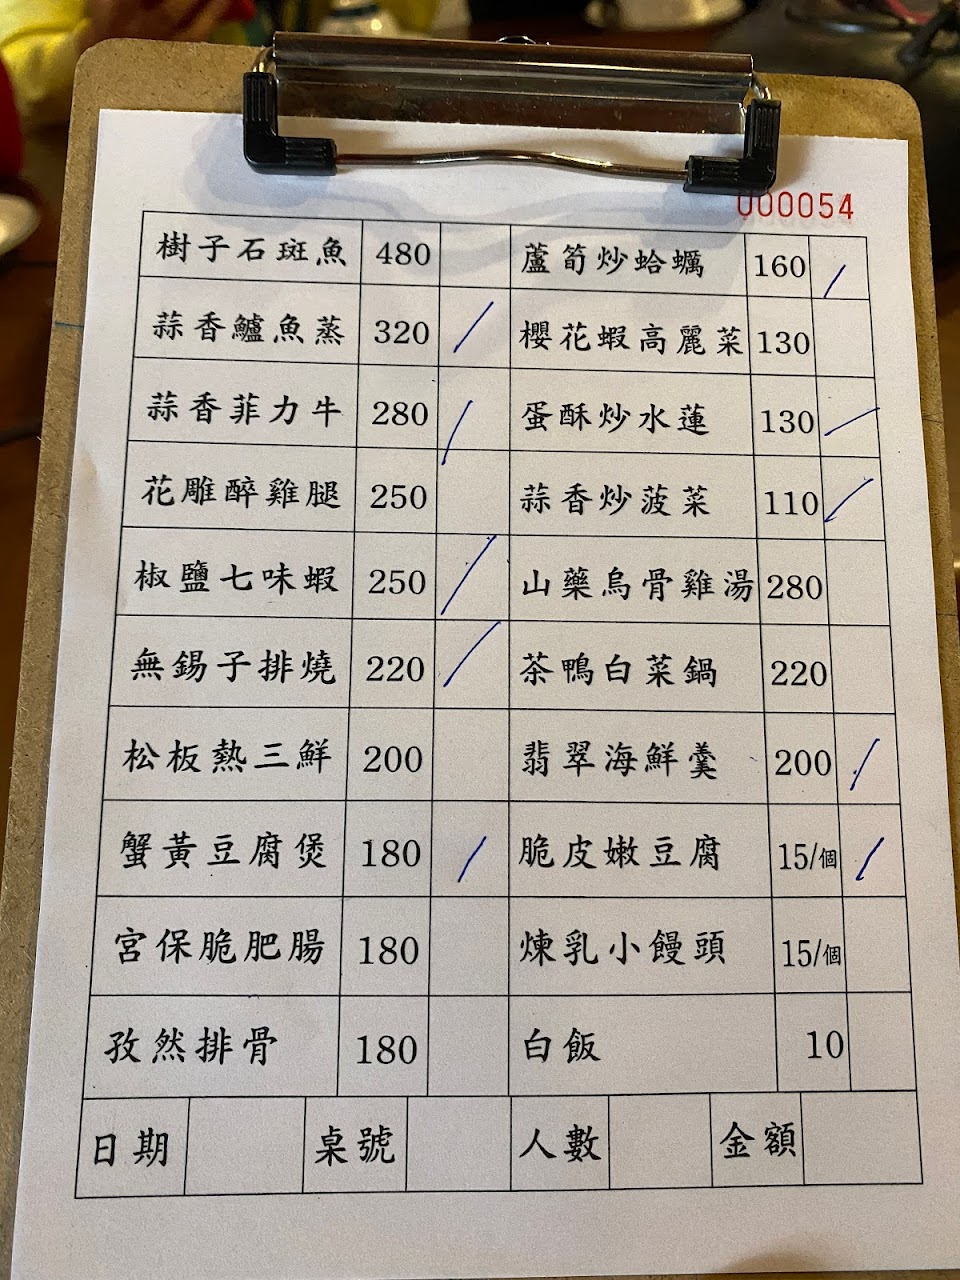 000054
樹子石斑魚 480 蘆筍炒蛤蠣 160
蒜香鱸魚蒸 320 櫻花蝦高麗菜 130
蒜香菲力牛 280 蛋酥炒水蓮 130
花雕醉雞腿 250 蒜香炒菠菜 110
椒鹽七味蝦 250 山藥烏骨雞湯 280
無錫子排燒 220 茶鴨白菜鍋 220
松板熱三鮮 200 翡翠海鮮羹 200
蟹黃豆腐煲 180 脆皮嫩豆腐 15/個
宮保脆肥腸 180 煉乳小饅頭 15/個
孜然排骨 180 白飯 10
日期 桌號 人數 金額